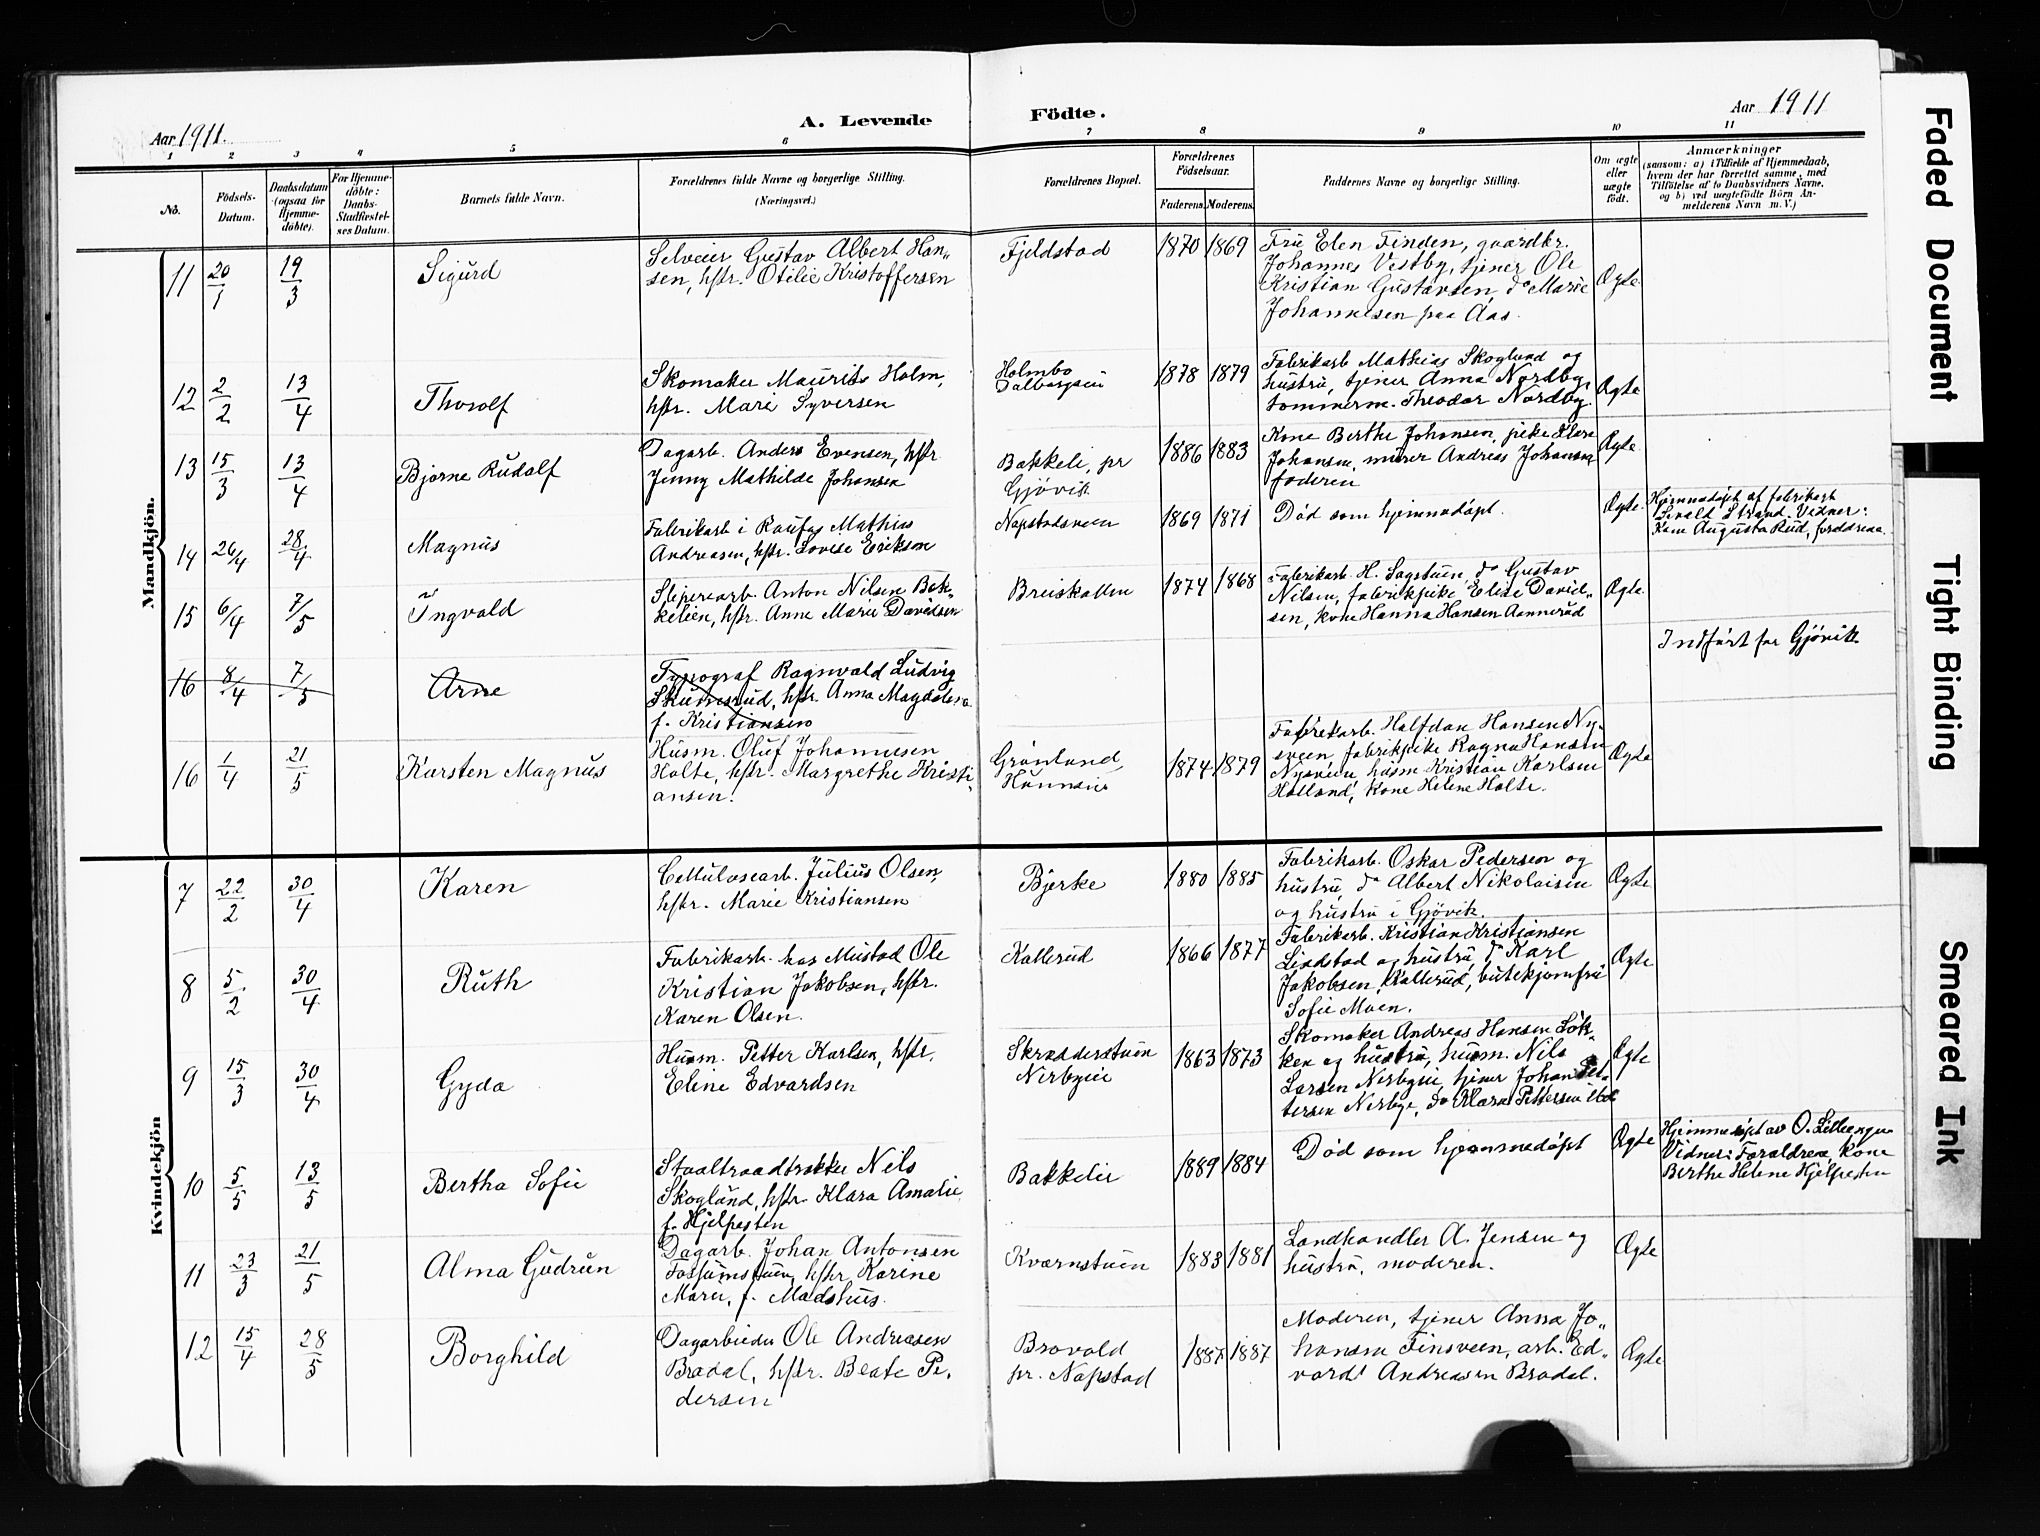 Aar 1911.
A. Levende Födte.
Aar 1911
1 2 3 4 5 6 7 8 9 10 11
No.
Födsels-
Datum.
Daabsdatum
(ogsaa for
Hjemme-
döbte).
For Hjemme-
döbte:
Daabs-
Stadfæstel-
ses Datum.
Barnets fulde Navn.
Forældrenes fulde Navne og borgerlige Stilling.
(Næringsvei.)
Forældrenes Bopæl.
Forældrenes
Födselsaar.
Faderens. Moderens.
Faddernes Navne og borgerlige Stilling.
Om ægte
eller
uægte
födt.
Anmærkninger
(saasom: a) i Tilfælde af Hjemmedaab,
hvem der har forrettet samme, med
Tilföielse af to Daabsvidners Navne,
og b) ved uægtefödte Börn An-
melderens Navn m. V.)
Mandkjön.
11 20/1 19/3 Sigurd
Selveier Gustav Albert Han-
sen, hstr. Otilie Kristoffersen
Fjeldstad 1870 1869
Fru Elen Finden, gaardbr.
Johannes Vestby, tjener Ole
Kristian Gustavsen, do Marie
Johannesen paa Aas.
Ægte
12 2/2 13/4 Thorolf
Skomaker Maurits Holm,
hstr. Mari Syversen
Holmbo
Dalborgeie
1878 1879
Fabrikarb. Mathias Skoglund og
hustru, tjener Anna Nordby,
tømmerm. Theodor Nordby.
Ægte
13 15/3 13/4 Bjarne Rudolf
Dagarb. Anders Evensen, hstr
Jenny Mathilde Johansen
Bakkeli, pr
Gjövik
1886 1883
Kone Berthe Johansen, pike Klara
Johansen, murer Andreas Johansen
faderen
Ægte
14 26/4 28/4 Magnus
Fabrikarb. i Raufos Mathias
Andreasen, hstr. Lovise Erikson
Nøpstadsveen 1869 1871
Død som hjemmedøpt.
Ægte
Hjemmedøpt af fabrikarb
Strand. Vidner:
Kone Augusta Rud, forældrene.
15 6/4 7/5 Ingvald
Sliperiarb. Anton Nilsen Bak-
kelien, hstr. Anne Marie Davidsen
Breiskallen 1874 1868
Fabrikarb. H. Sagstuen, do Gustav
Nilsen, fabrikpike Elise David-
sen, kone Hanna Hansen Aannerud
Ægte
16 8/4 7/5 Arne
Typograf Ragnvald Ludvig
Skumsrud, hstr. Anna Magdalena
f. Kristiansen
Indført for Gjövik
16 1/4 21/5 Karsten Magnus
Husm. Oluf Johannesen
Holte, hstr. Margrethe Kristi-
ansen.
Grønland
Hunnseie
1874 1879
Fabrikarb. Halfdan Hansen Ny-
sveen, fabrikpike Ragna Hansen
Nysveen, husm Kristian Karlsen
Holland, kone Helene Holte.
Ægte
Kvindekjön
7 22/2 30/4 Karen
Cellulosearb. Julius Olsen,
hstr. Marie Kristiansen
Bjerke 1880 1885
Fabrikarb. Oskar Pedersen og
hustru, do Albert Nikolaisen
og hustru i Gjövik.
Ægte
8 5/2 30/4 Ruth
Fabrikarb. hos Mustad Ole
Kristian Jakobsen, hstr.
Karen Olsen.
Kallerud 1866 1877
Fabrikarb. Kristian Kristiansen
Lindstad og hustru, do Karl
Jakobsen, Kallerud, butikjomfru
Sofie Moen.
Ægte
9 15/3 30/4 Gyda
Husm. Petter Karlsen, hstr.
Eline Edvardsen
Skrædderstuen
Nerbyeie
1863 1873
Skomaker Andreas Hansen Løk-
ken og hustru, husm. Nils
Larsen Nerbyeie, tjener Johan Pet-
tersen Nerbye, do Klara Pettersen ibd
Ægte
10 5/5 13/5 Bertha Sofie
Staaltraadtrækker Nils
Skoglund, hstr. Klara Amalie
f. Hjelpesten
Bakkelie 1889 1884
Død som hjemmedøpt
Ægte
Hjemmedøpt av O. Lilleengen
Vidner: Forældrene, kone
Berthe Helene Hjelpesten
11 23/3 21/5 Alma Gudrun
Dagarb. Johan Antonsen
Fossumstuen, hstr Karine
Marie, f. Madshus.
Kværnstuen 1883 1881
Landhandler A. Jensen og
hustru, moderen.
Ægte
12 15/4 28/5 Borghild
Dagarbeider Ole Andreasen
Bradal, hstr. Beate Pe-
dersen
Brovold
pr. Nøpstad
1887 1887
Moderen, tjener Anna Jo-
hansen Finsveen, arb. Ed-
vard Andreasen Bradal.
Ægte
Faded Document
Tight Binding
Smeared Ink